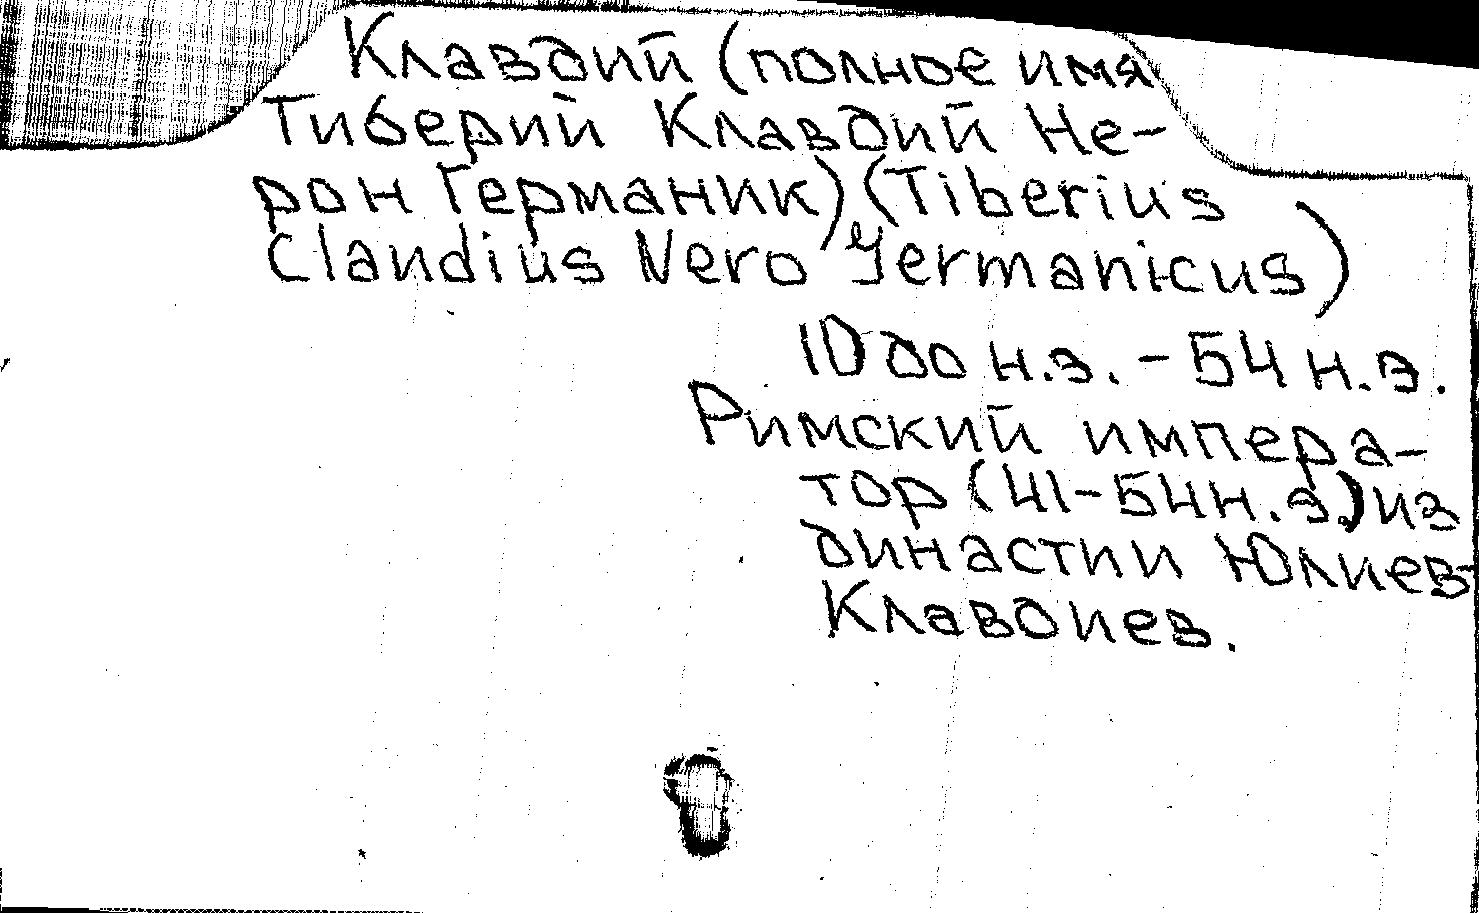 Клавдий (полное имя
Тиберий Клавдий Не-
рон Германик) (Tiberius
Claudius Nero Germanicus)
10 до н.э. - 54 н.э.
Римский импера-
тор (41-54 н.э.) из
династии Юлиев-
Клавдиев.